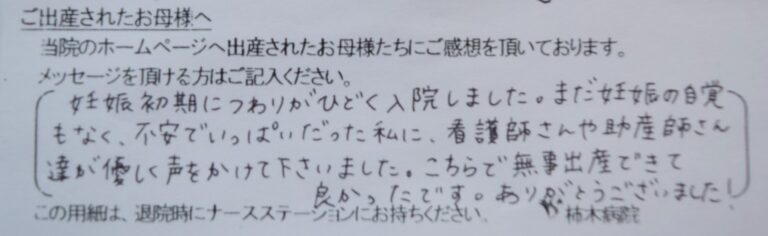 ご出産されたお母様へ
当院のホームページへ出産されたお母様たちにご感想を頂いております。
メッセージを頂ける方はご記入ください。
妊娠初期につわりがひどく入院しました。まだ妊娠の自覚
もなく、不安でいっぱいだった私に、看護師さんや助産師さん
達が優しく声をかけて下さいました。こちらで無事出産できて
良かったです。ありがとうございました!
この用紙は、退院時にナースステーションにお持ちください。 柿木病院